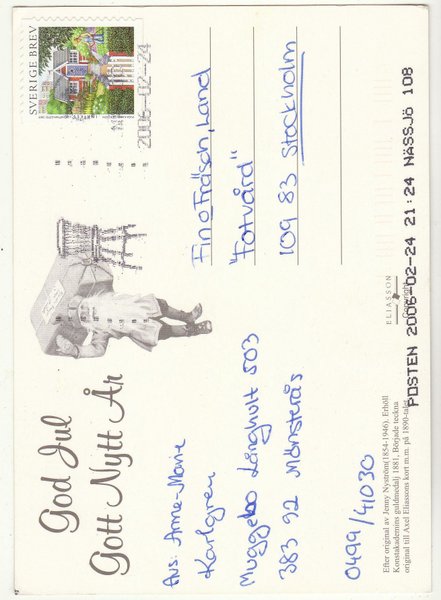 SVERIGE BREV
2006-02-24
God Jul
Gott Nytt År
Avs: Anne-Marie
Karlgren
Muggebo Långhult 503
383 92 Mönsterås
0499/41030
Fin o Fräsch, Land
"Fotvård"
109 83 Stockholm
ELIASSON
Copyright
Efter original av Jenny Nyström(1854-1946), Erhöll
Konstakademins guldmedalj 1881, Började teckna
original till Axel Eliassons kort m.m. på 1890-talet
POSTEN 2006-02-24 21:24 NÄSSJÖ 108